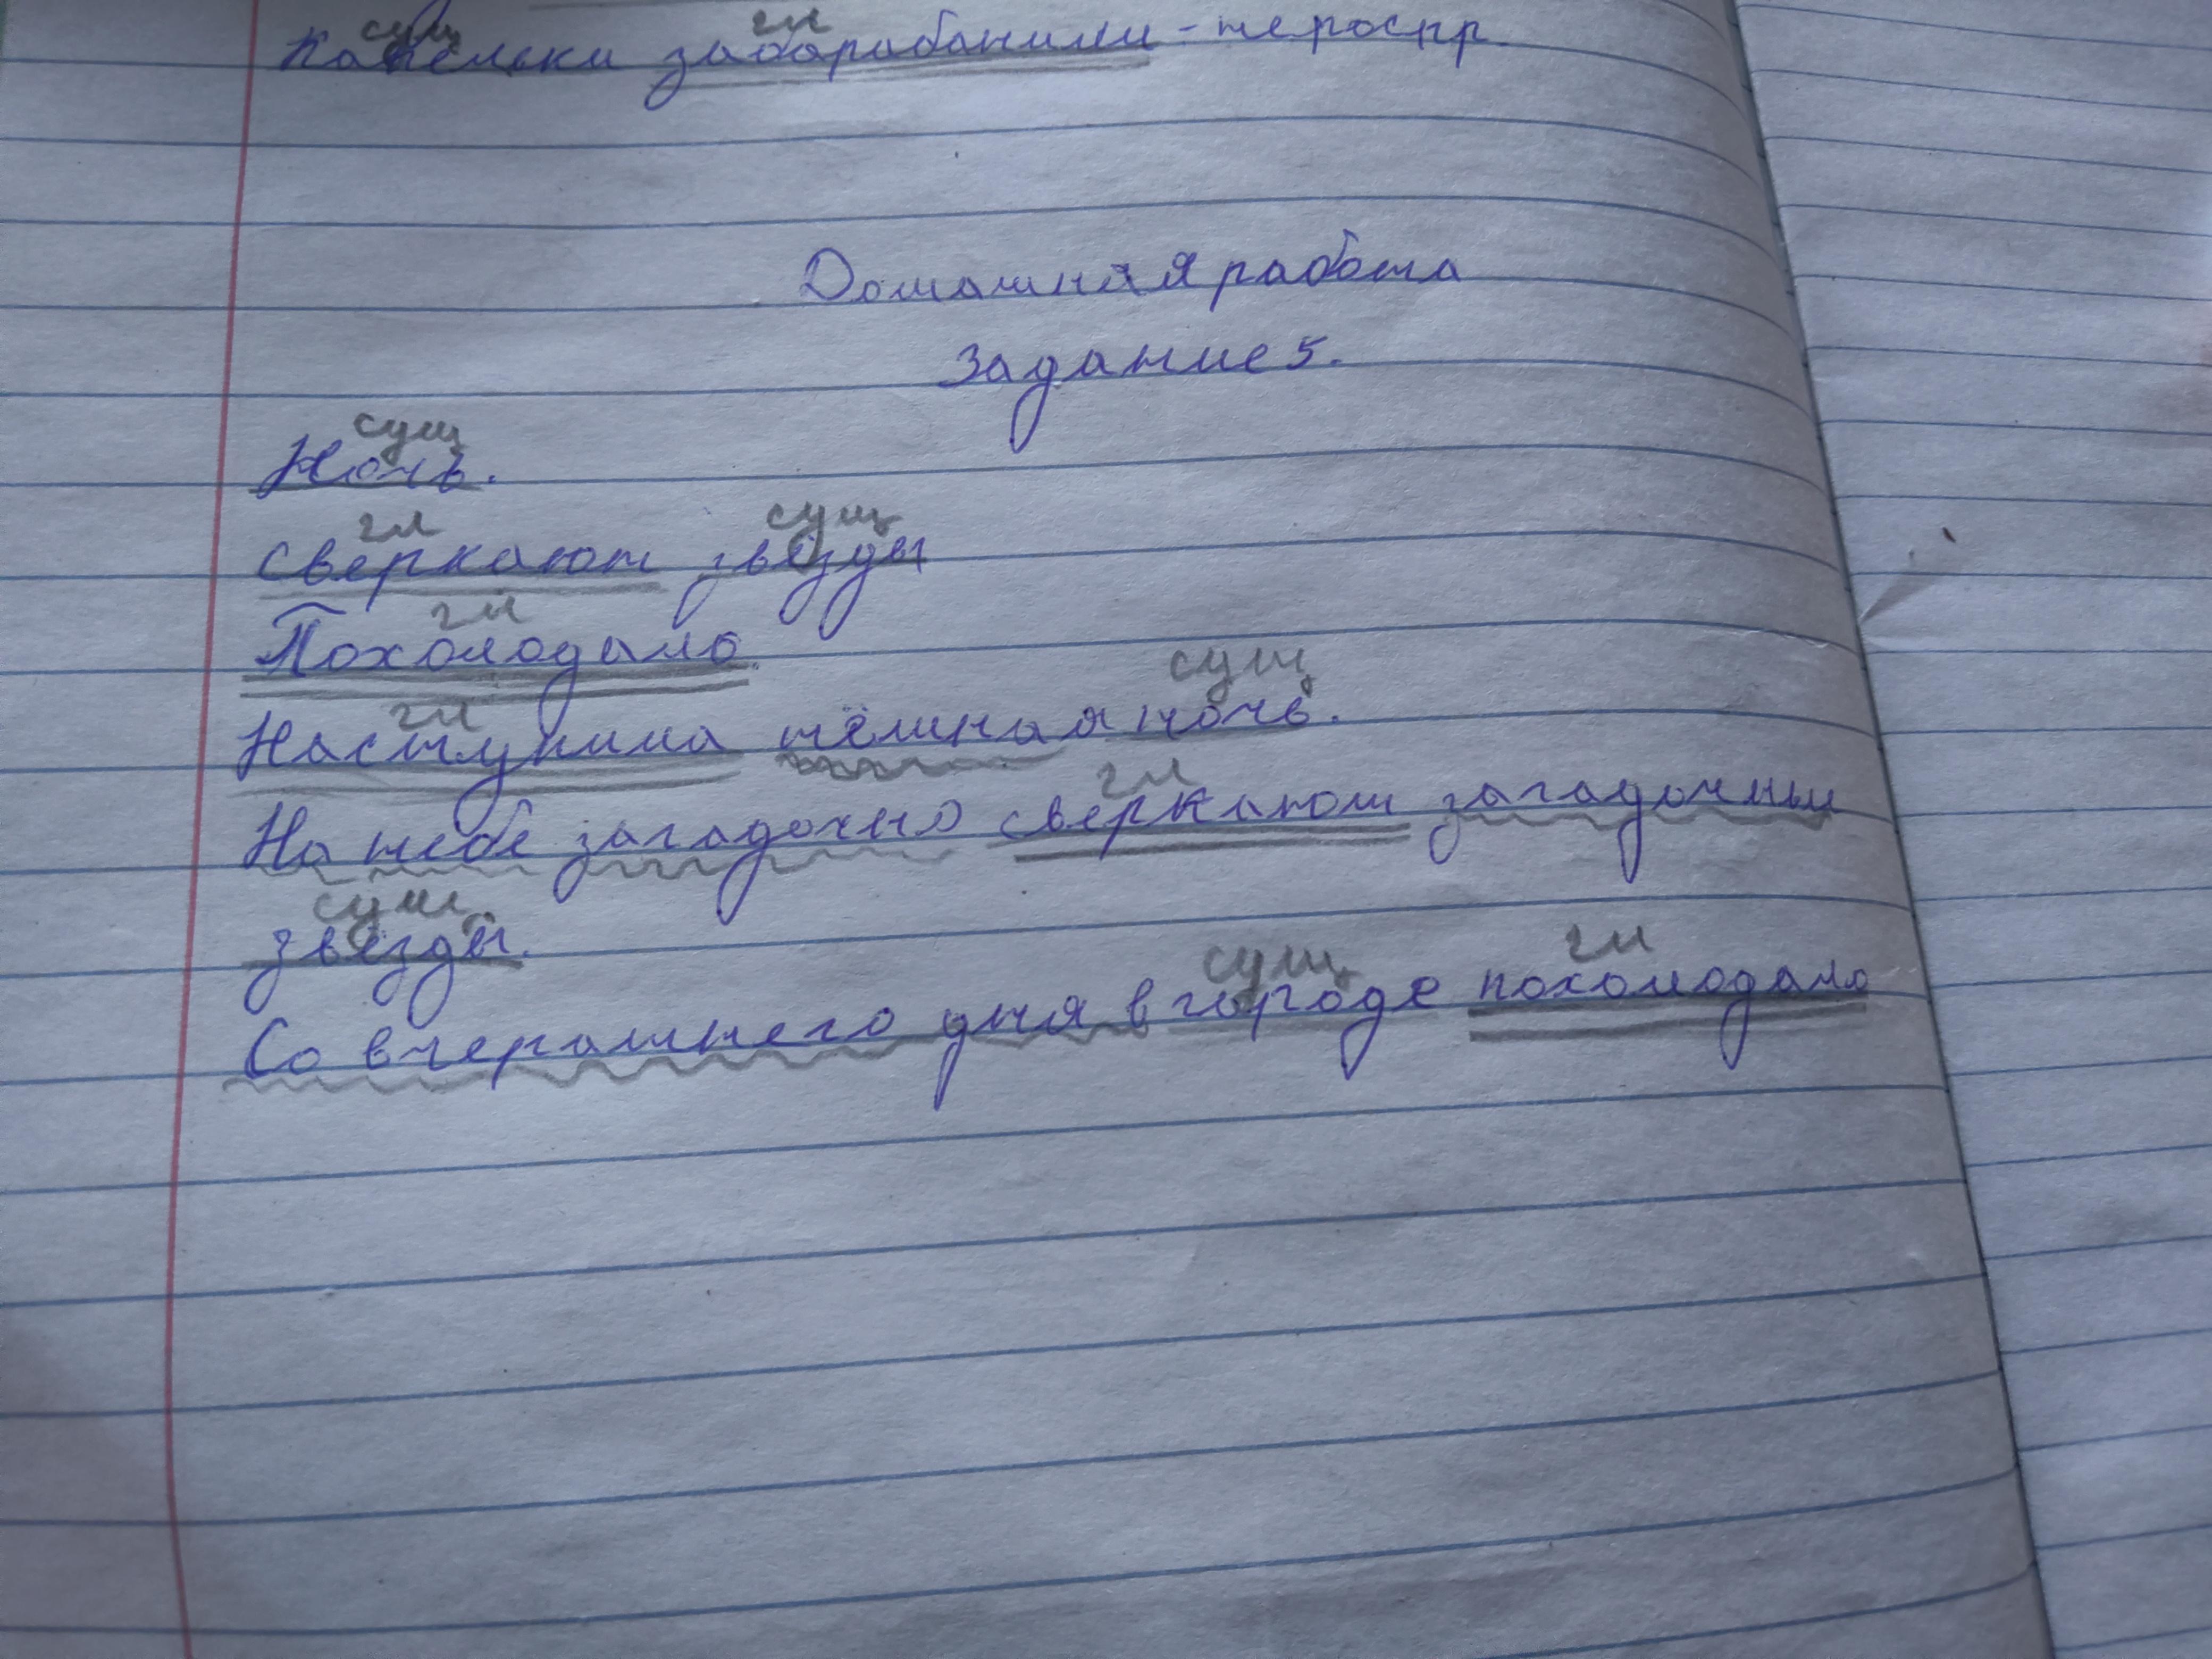 сущ гл
Капельки забарабанили - нераспр.
Домашняя работа
Задание 5.
сущ
Ночь.
гл сущ
Сверкают звёзды
гл
Похолодало.
гл сущ
Наступила тёмная ночь.
гл
На небе загадочно сверкают загадочны
сущ
звёзды.
сущ гл
Со вчерашнего дня в городе похолодало